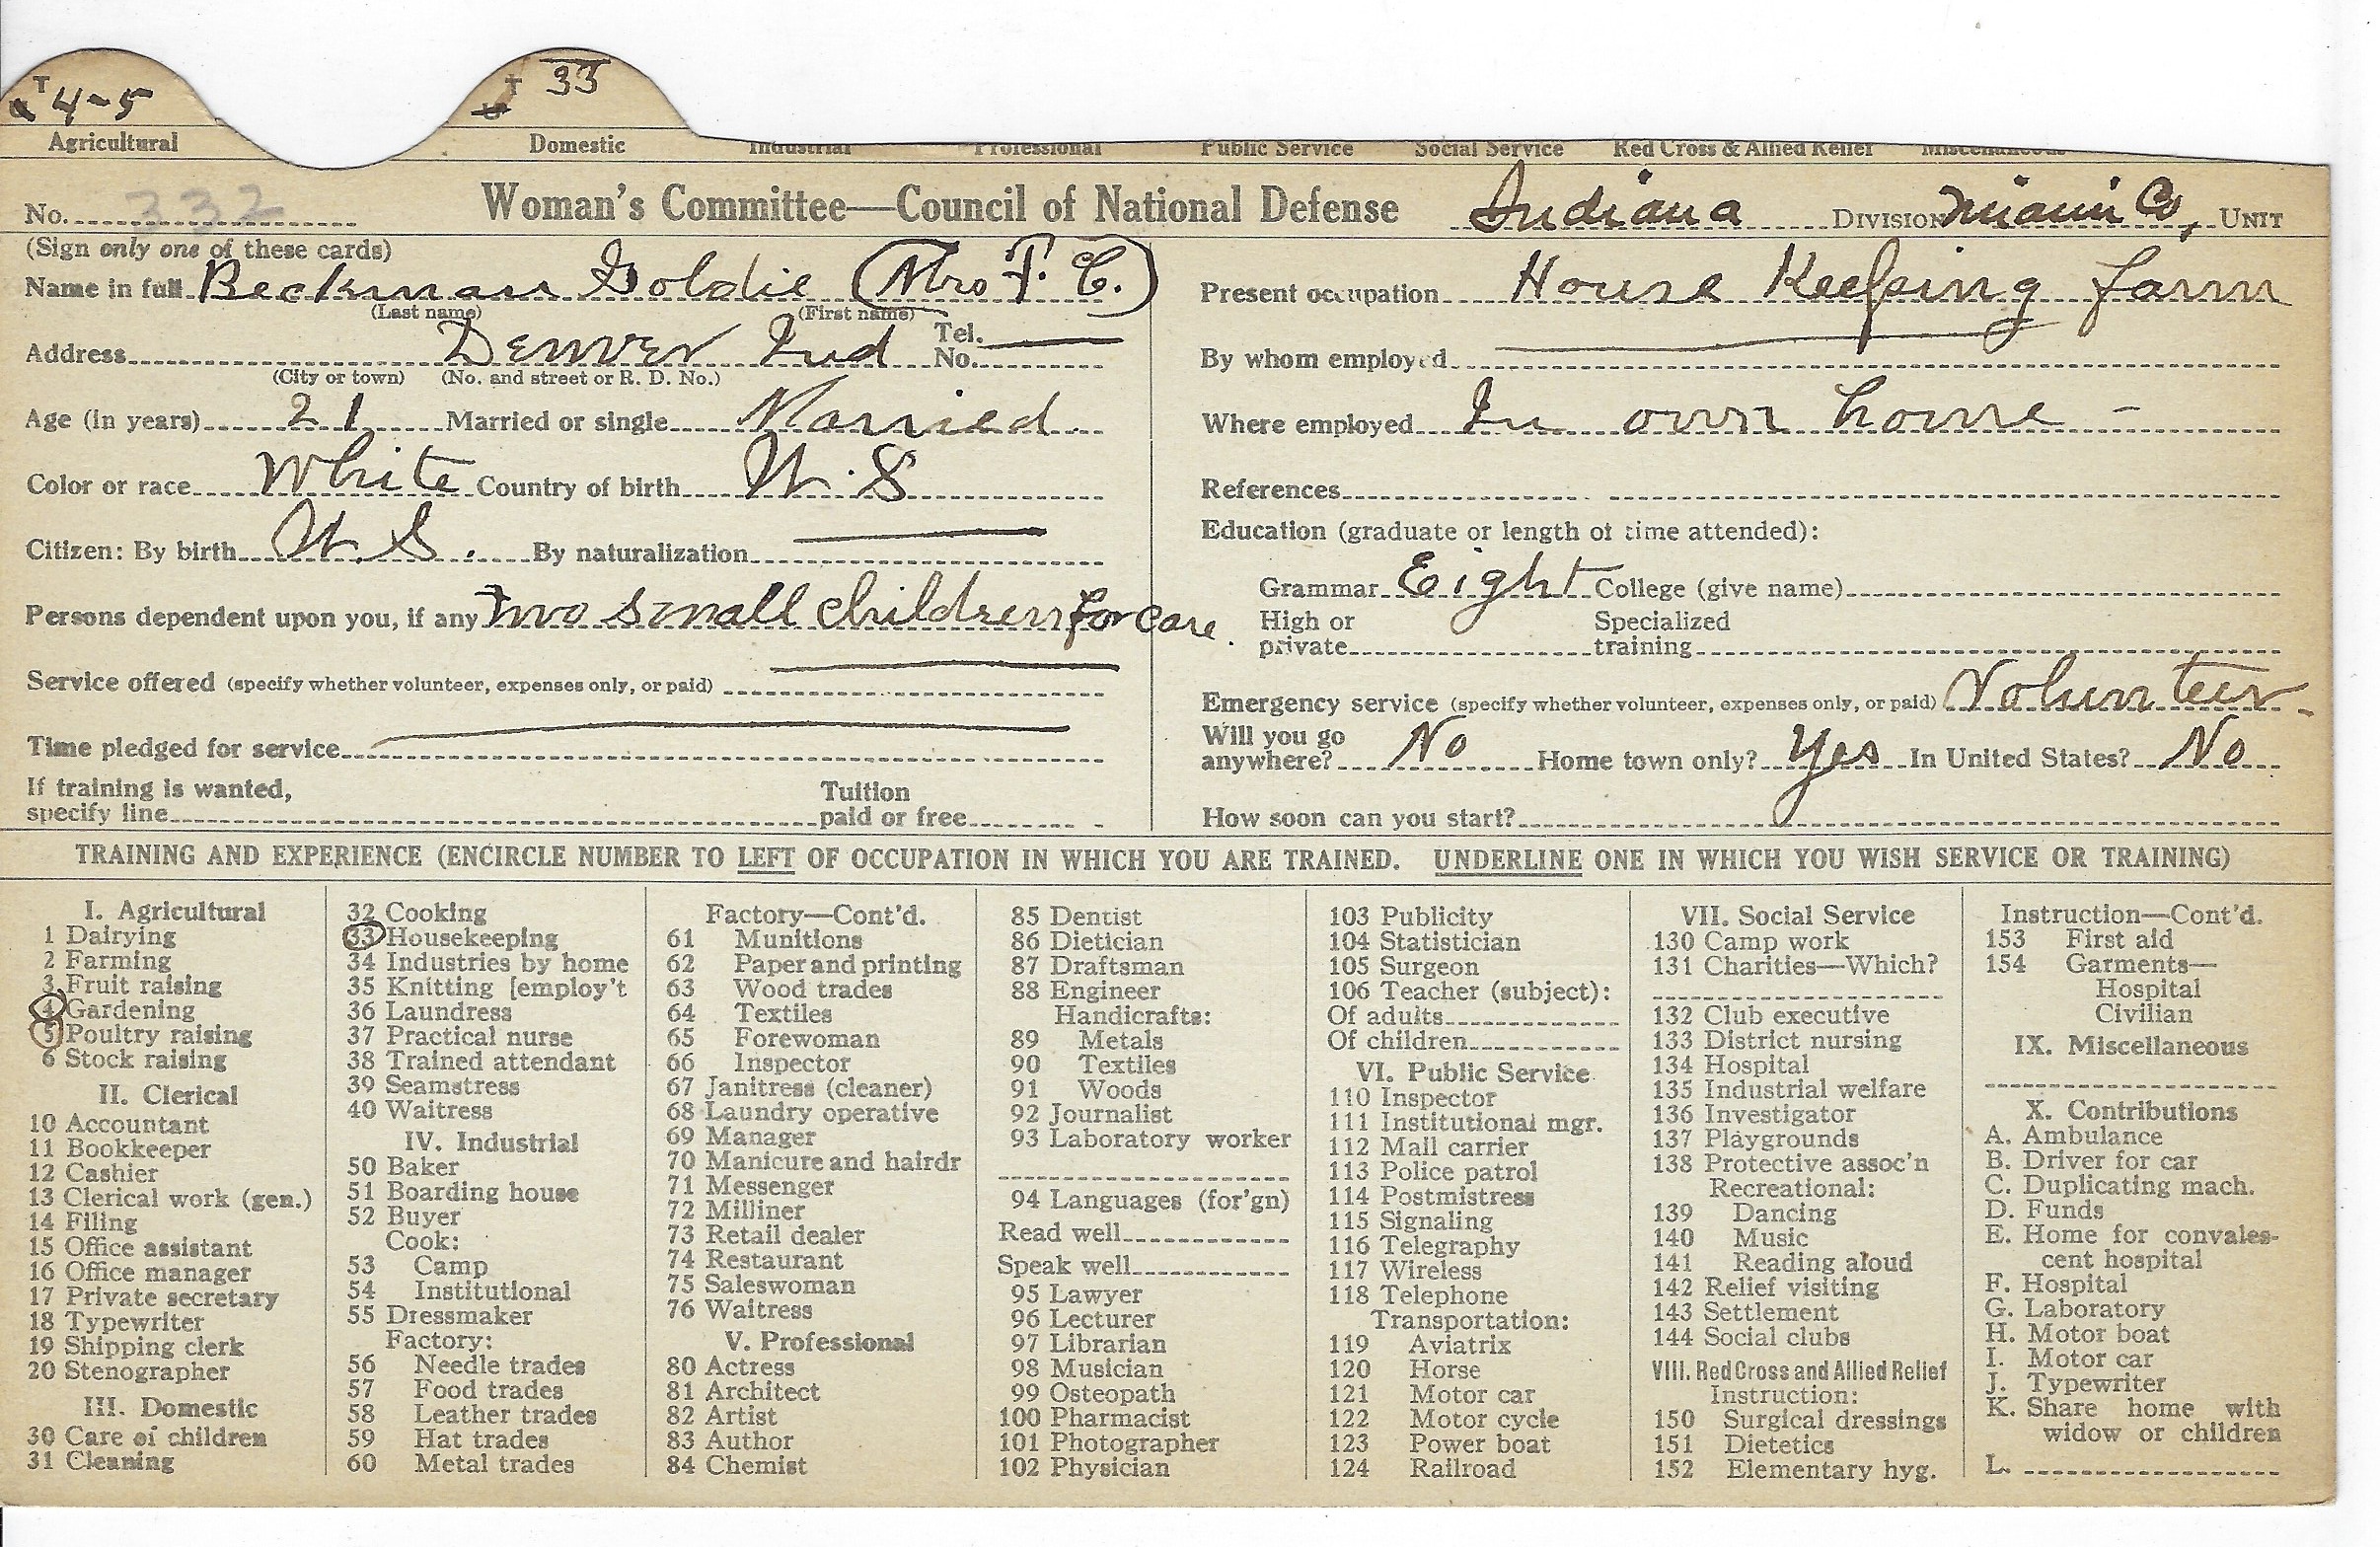 T 4-5
T 33
Agricultural Domestic Industrial Professional Public Service Social Service Red Cross & Allied Relief Miscellaneous
No. 332 Woman's Committee—Council of National Defense Indiana DIVISION Miami Co, UNIT
(Sign only one of these cards)
Name in full Beckman Goldie (Mrs F. C.)
(Last name) (First name)
Address Denver Ind Tel. No.
(City or town) (No. and street or R. D. No.)
Age (in years) 21 Married or single Married
Color or race White Country of birth U. S
Citizen: By birth U. S. By naturalization
Persons dependent upon you, if any Two small children for care.
Service offered (specify whether volunteer, expenses only, or paid)
Time pledged for service
If training is wanted,
specify line
Tuition
paid or free
Present occupation House Keeping farm
By whom employed
Where employed In own home -
References
Education (graduate or length of time attended):
Grammar Eight College (give name)
High or
private
Specialized
training
Emergency service (specify whether volunteer, expenses only, or paid) Volunteer.
Will you go
anywhere? No Home town only? Yes In United States? No
How soon can you start?
TRAINING AND EXPERIENCE (ENCIRCLE NUMBER TO LEFT OF OCCUPATION IN WHICH YOU ARE TRAINED. UNDERLINE ONE IN WHICH YOU WISH SERVICE OR TRAINING)
I. Agricultural
1 Dairying
2 Farming
3 Fruit raising
4 Gardening
5 Poultry raising
6 Stock raising
II. Clerical
10 Accountant
11 Bookkeeper
12 Cashier
13 Clerical work (gen.)
14 Filing
15 Office assistant
16 Office manager
17 Private secretary
18 Typewriter
19 Shipping clerk
20 Stenographer
III. Domestic
30 Care of children
31 Cleaning
32 Cooking
33 Housekeeping
34 Industries by home
35 Knitting [employ't
36 Laundress
37 Practical nurse
38 Trained attendant
39 Seamstress
40 Waitress
IV. Industrial
50 Baker
51 Boarding house
52 Buyer
Cook:
53 Camp
54 Institutional
55 Dressmaker
Factory:
56 Needle trades
57 Food trades
58 Leather trades
59 Hat trades
60 Metal trades
Factory—Cont'd.
61 Munitions
62 Paper and printing
63 Wood trades
64 Textiles
65 Forewoman
66 Inspector
67 Janitress (cleaner)
68 Laundry operative
69 Manager
70 Manicure and hairdr
71 Messenger
72 Milliner
73 Retail dealer
74 Restaurant
75 Saleswoman
76 Waitress
V. Professional
80 Actress
81 Architect
82 Artist
83 Author
84 Chemist
85 Dentist
86 Dietician
87 Draftsman
88 Engineer
Handicrafts:
89 Metals
90 Textiles
91 Woods
92 Journalist
93 Laboratory worker
94 Languages (for'gn)
Read well
Speak well
95 Lawyer
96 Lecturer
97 Librarian
98 Musician
99 Osteopath
100 Pharmacist
101 Photographer
102 Physician
103 Publicity
104 Statistician
105 Surgeon
106 Teacher (subject):
Of adults
Of children
VI. Public Service
110 Inspector
111 Institutional mgr.
112 Mail carrier
113 Police patrol
114 Postmistress
115 Signaling
116 Telegraphy
117 Wireless
118 Telephone
Transportation:
119 Aviatrix
120 Horse
121 Motor car
122 Motor cycle
123 Power boat
124 Railroad
VII. Social Service
130 Camp work
131 Charities—Which?
132 Club executive
133 District nursing
134 Hospital
135 Industrial welfare
136 Investigator
137 Playgrounds
138 Protective assoc'n
Recreational:
139 Dancing
140 Music
141 Reading aloud
142 Relief visiting
143 Settlement
144 Social clubs
VIII. Red Cross and Allied Relief
Instruction:
150 Surgical dressings
151 Dietetics
152 Elementary hyg.
Instruction—Cont'd.
153 First aid
154 Garments—
Hospital
Civilian
IX. Miscellaneous
X. Contributions
A. Ambulance
B. Driver for car
C. Duplicating mach.
D. Funds
E. Home for convales-
cent hospital
F. Hospital
G. Laboratory
H. Motor boat
I. Motor car
J. Typewriter
K. Share home with
widow or children
L.